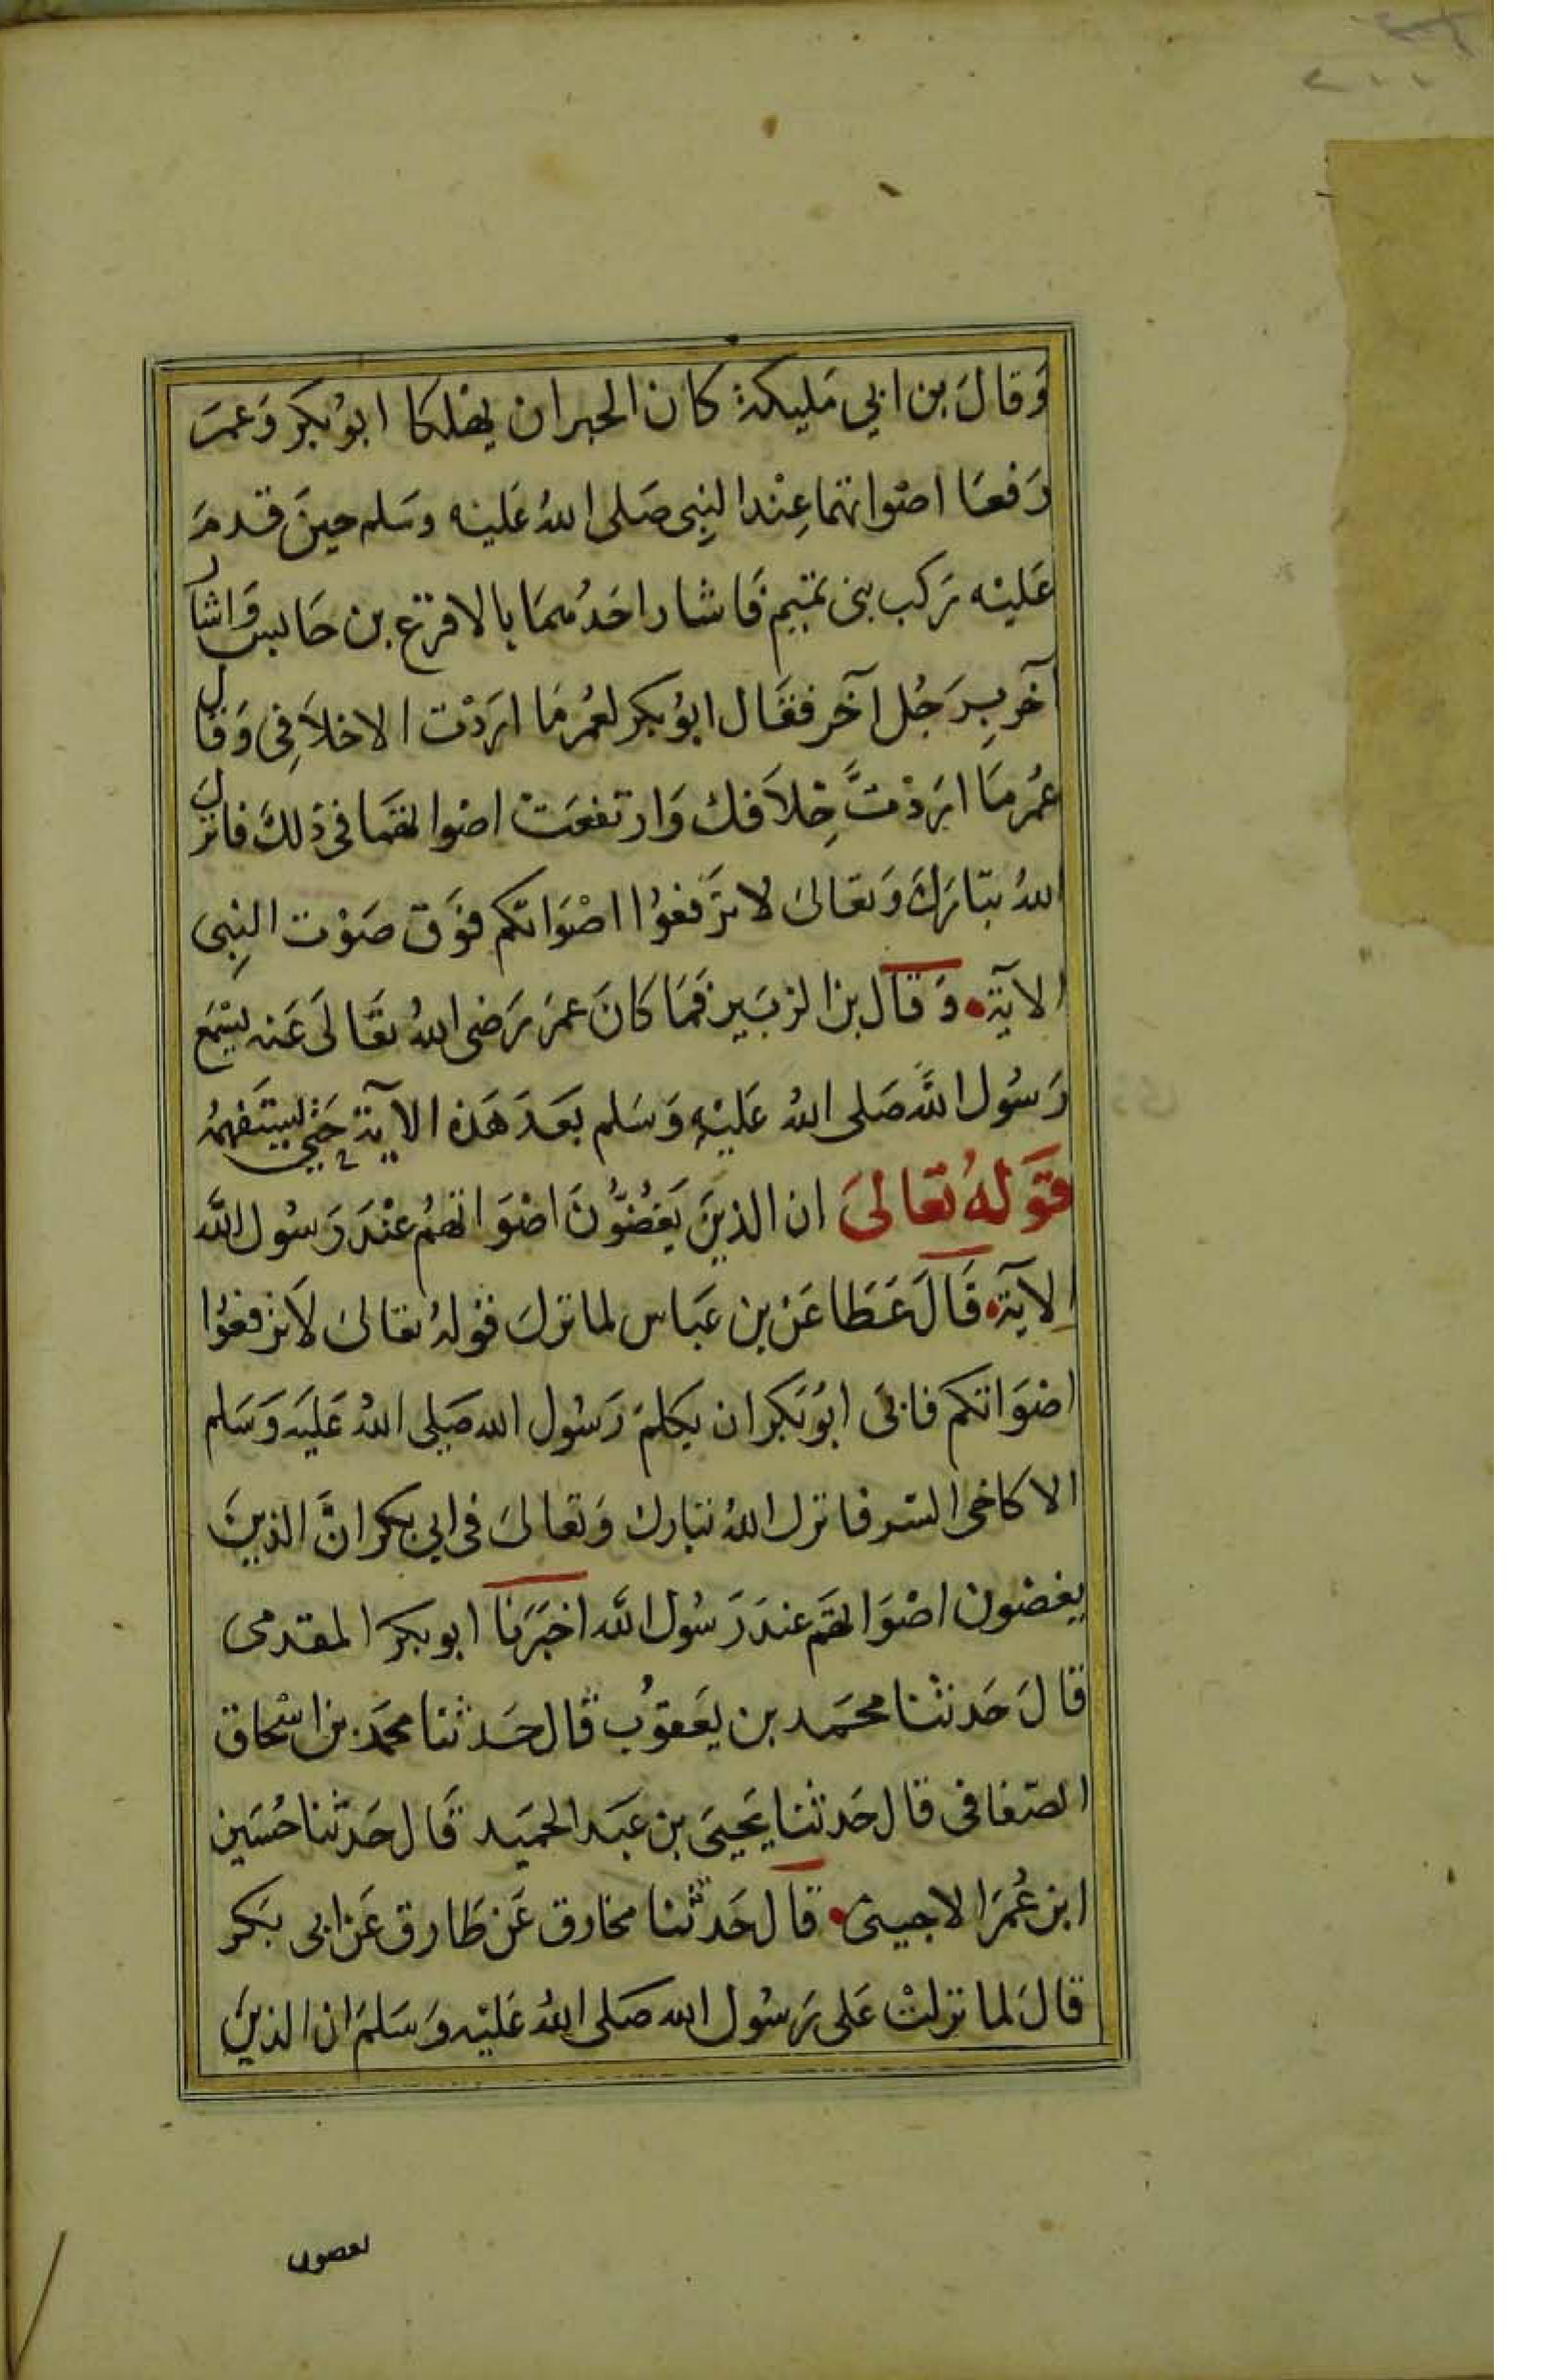 وَقالَ بن ابي مَليكة كان الحبران يهلكا ابوُ بكَر وَعمَر
رَفعَا اصْواتهمَا عِنْد النِبى صَلى اللهُ عَليْه وسَلم حينَ قدمَ
عَليْه رَكب بنى تميِم فَاشار احَدُهمَا بالاقرَع بن حَابس وَاشار
آخَر بِرَجُل آخَر فقَال ابوُ بكر لعُمر مَا ارَدْت الا خلاَفِى وَقال
عمُر مَا ارَدْتَّ خِلاَفك وَارتفعَتْ اصْواتهمَا فى ذلكَ فانزلَ
اللهُ تبَارَكَ وَتعَالىَ لا ترَفعوُا اصْوَاتكم فوَق صَوْت النِبى
الآيَة وَقال بن الزبَير فمَا كانَ عمَر رَضى اللهُ تعَالىَ عَنه يسْمَع
رَسُول اللَّه صَلى اللهُ عَليْهِ وَسَلم بَعَد هَذه الآيَة حَتى يسْتَفهمُه
قوَلهُ تعَالىَ ان الذينَ يَغُضُّونَ اصْوَاتهُم عنْدَ رَسُول اللَّه
الآيَة قَالَ عَطَا عَن بن عَبَاس لما نزلَ قوْلهُ تعَالىَ لاَ ترفعوُا
اصْوَاتكم فابىَ ابوُ بَكر ان يكلمَ رَسُول الله صَلى اللهُ عَليَه وَسَلم
الا كاخى السّر فانزل اللهُ تبَارك وَتعَالىَ فى ابى بكر انَّ الذينَ
يغضون اصْوَاتهَم عندَ رَسُول اللَّه اخبَرَنا ابو بكر المقدمى
قالَ حَدثنْا محمَد بن يَعقوُب قال حَدثنا محمَد بن اسْحَاق
الصّغانى قال حَدثنا يَحيىَ بن عَبَد الحميَد قَال حَدثنا حُسَين
ابن عُمَر الاحمسى قال حَدثنا مخارق عَن طَارق عَن ابى بَكر
قالَ لما نزلتْ عَلى رَسُول الله صَلى اللهُ عَليْه وَسَلمَ ان الذينَ
يعصون